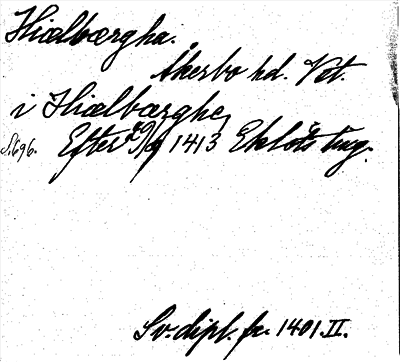 Hiælbærgha.
Åkerbo hd. Vst.
i Hiælbærghe,
S. 696. Efter 29/9 1413 Eklöts tug.
Sv. dipl. fr. 1401. II.